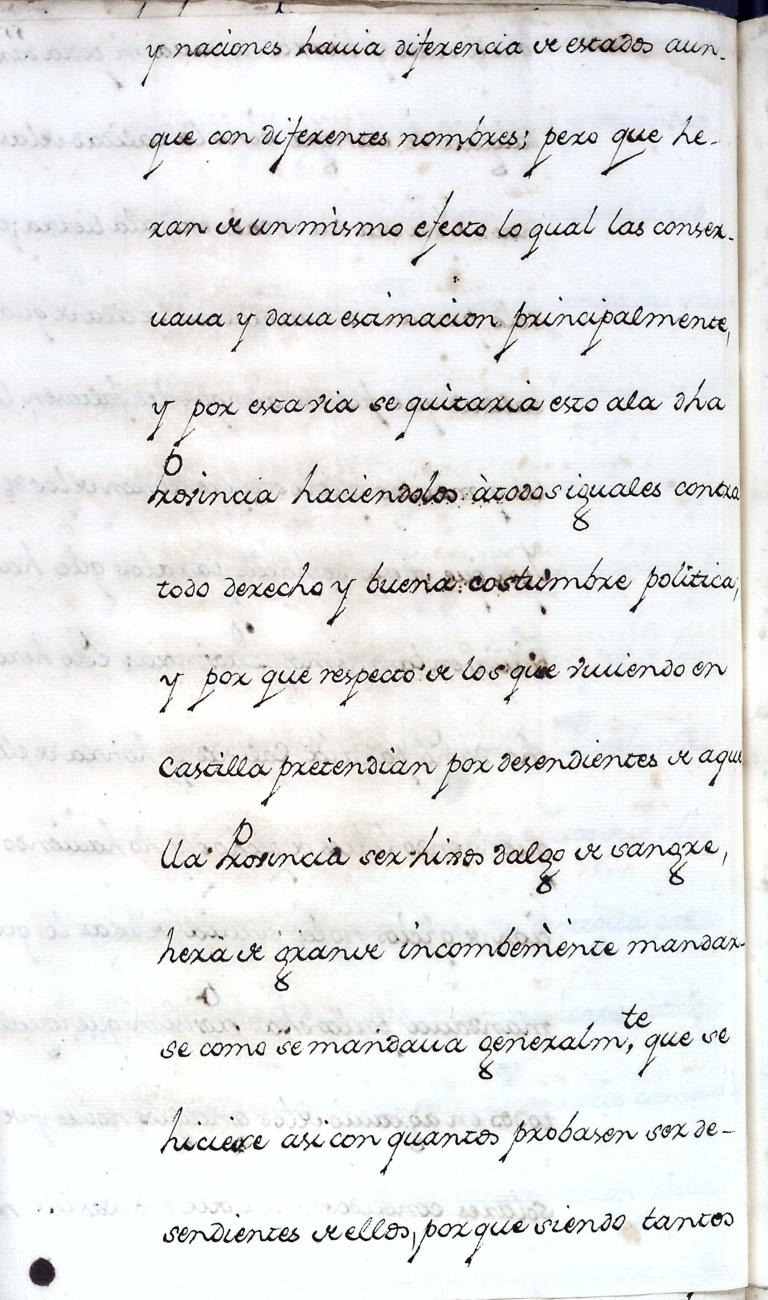 y naciones havia diferencia de estados aun-
que con diferentes nombres; pero que he-
ran de un mismo efecto lo qual las conser-
vava y dava estimacion principalmente,
y por esta via se quitaria esto ala dha
Provincia haciendolos àtodos iguales contra
todo derecho y buena costumbre politica;
y por que respecto de los que viviendo en
Castilla pretendian por desendientes de aque
lla Provincia ser hixos dalgo de sangre,
herà de grande incombeniente mandar-
se como se mandava generalm,te que se
hiciere asi con quantos probasen ser de-
sendientes de ellos, por que siendo tantos